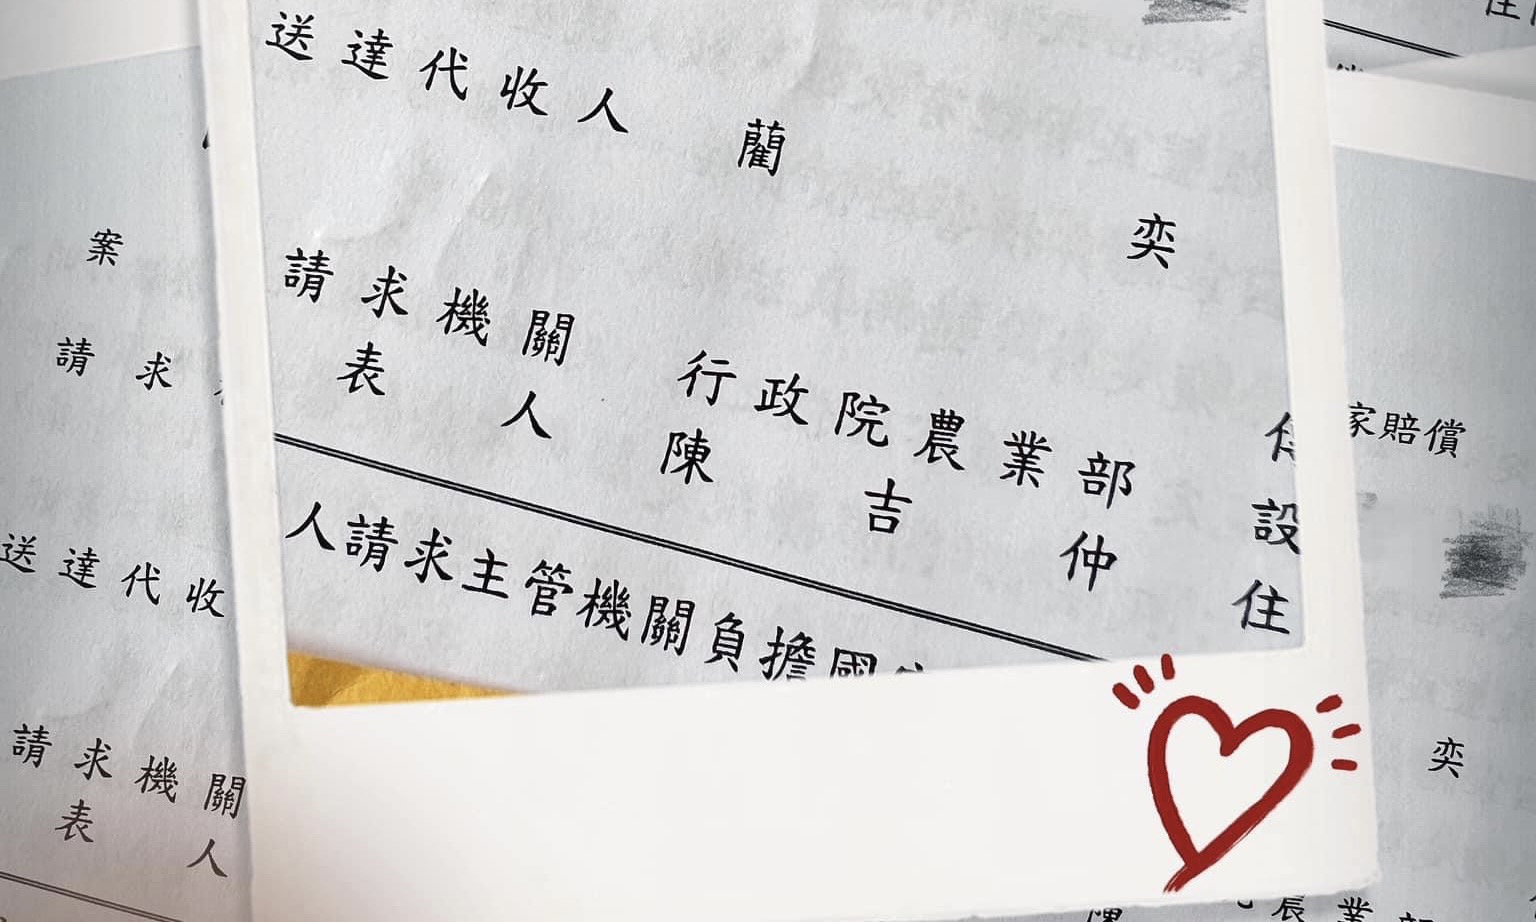 送達代收人 藺 奕
請求機關 行政院農業部
表人 陳吉仲 設
住
人請求主管機關負擔國
案
請求
送達代收
請求機關
表人
家賠償
奕
農業